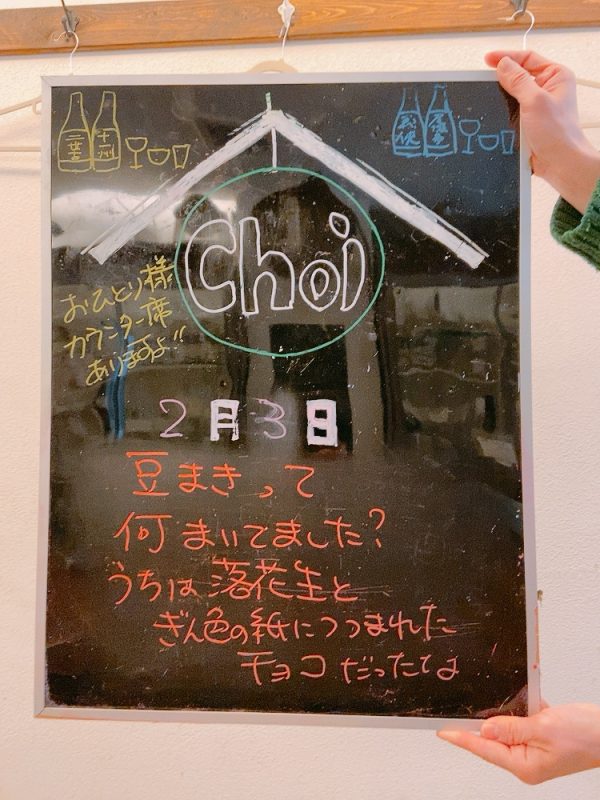 二世古
十一州
Choi
おひとり様
カウンター席
ありますよ!!
2月3日
豆まきって
何まいてました?
うちは落花生と
ぎん色の紙につつまれた
チョコだったなよ